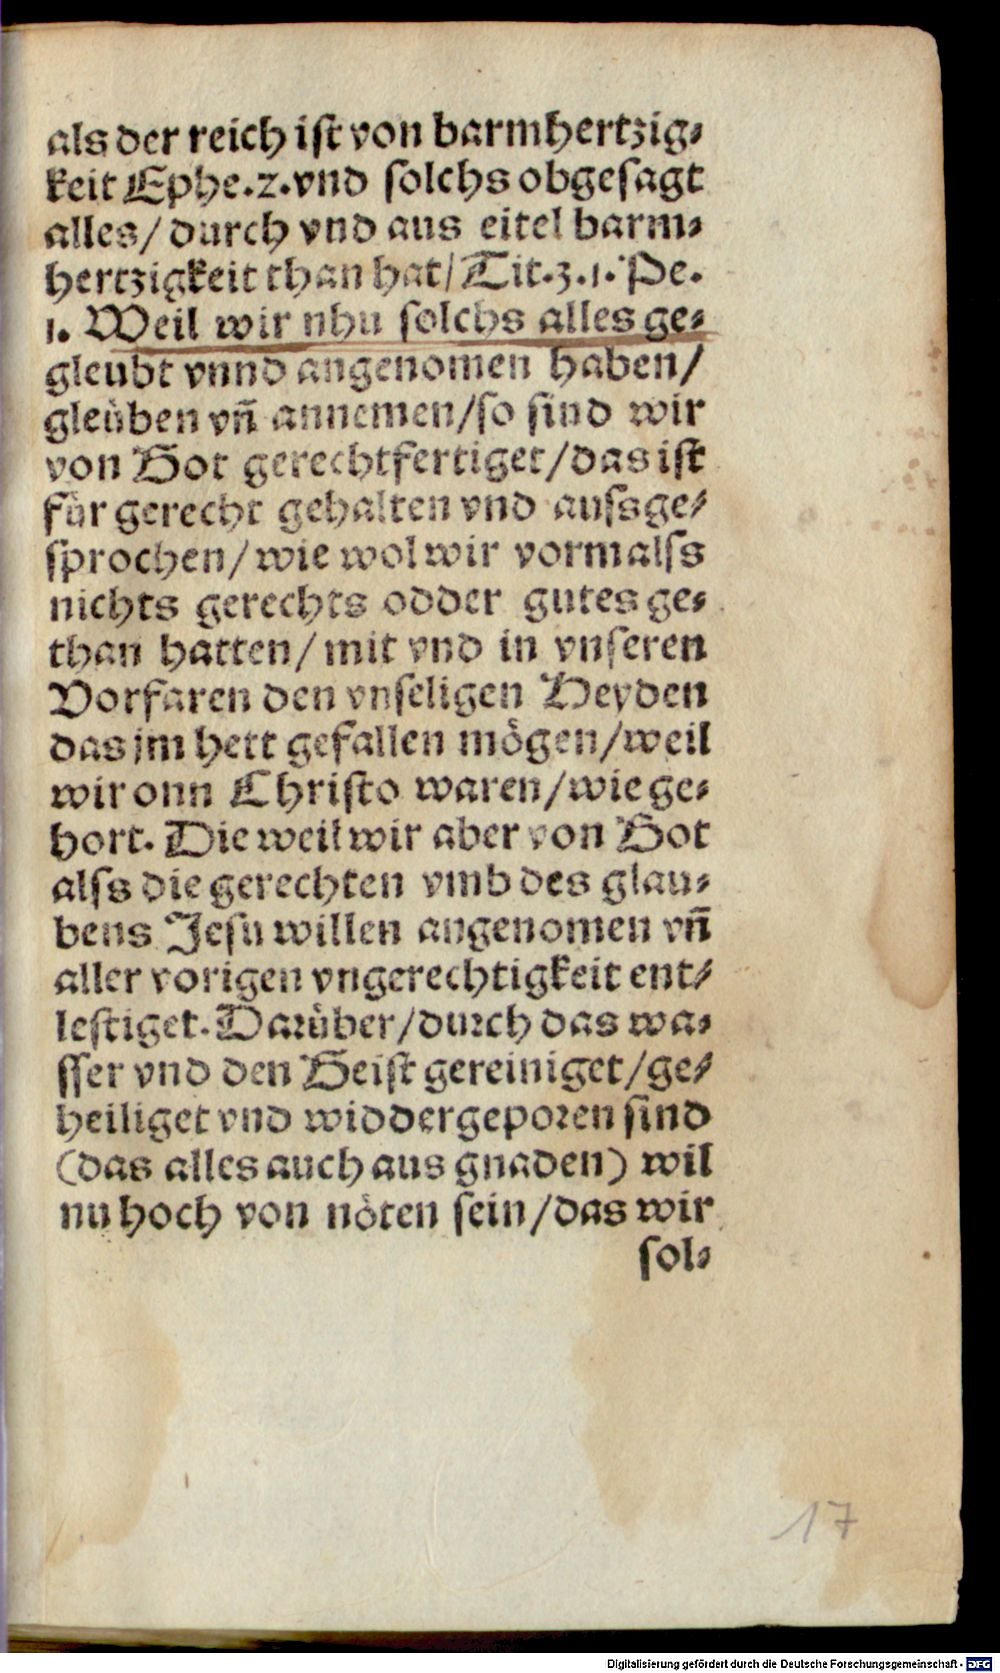 als der reich ist von barmhertzig⸗
keit Ephe.2.vnd solchs obgesagt
alles/ durch vnd aus eitel barm⸗
hertzigkeit than hat/ Tit.3.1. Pe.
1. Weil wir nhu solchs alles ge⸗
gleubt vnnd angenomen haben/
gleüben vñ annemen/so sind wir
von Got gerechtfertiget/das ist
für gerecht gehalten vnd aufsge⸗
sprochen/ wie wol wir vormalſs
nichts gerechts odder gutes ge⸗
than hatten/ mit vnd in vnseren
Vorfaren den vnseligen Heyden
das jm hett gefallen mögen/weil
wir onn Christo waren/wie ge⸗
hort. Die weil wir aber von Got
alſs die gerechten vmb des glau⸗
bens Jesu willen angenomen vñ
aller vorigen vngerechtigkeit ent⸗
lestiget. Darüber/durch das wa⸗
sser vnd den Geist gereiniget/ge⸗
heiliget vnd widdergeporen sind
(das alles auch aus gnaden) wil
nu hoch von nöten sein/das wir
sol⸗
17
Digitalisierung gefördert durch die Deutsche Forschungsgemeinschaft - DFG